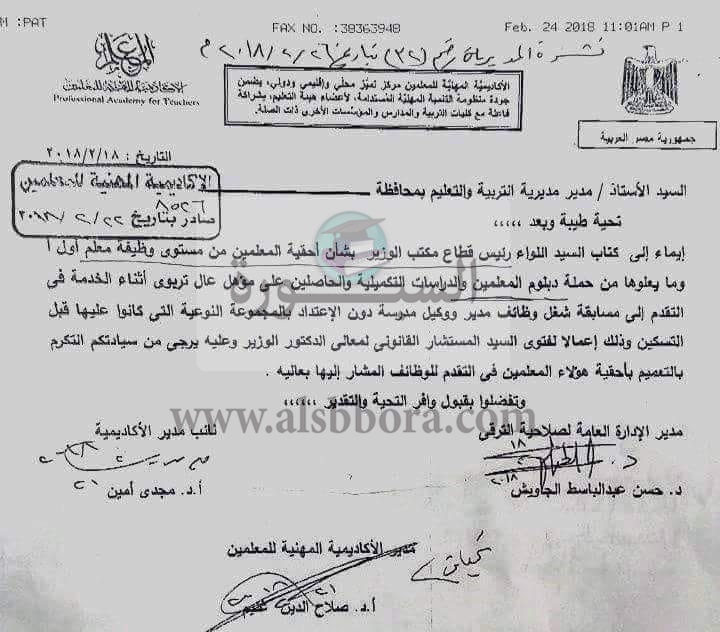 M :PAT
FAX NO. :38363948
Feb. 24 2018 11:01AM P 1
نشرة المديريات رقم (٣٢) بتاريخ ٢٠١٨/٢/٢٦ م
الأكاديمية المهنية للمعلمين
Professional Academy for Teachers
الأكاديمية المهنية للمعلمين مركز تميز محلي وإقليمي ودولي، يضمن
جودة منظومة التنمية المهنية المستدامة، لأعضاء هيئة التعليم، بشراكة
فاعلة مع كليات التربية والمدارس والمؤسسات الأخرى ذات الصلة.
جمهورية مصر العربية
التاريخ : ٢٠١٨/٢/١٨
الأكاديمية المهنية للمعلمين
٨٥٢٦
صادر بتاريخ ٢٠١٨/٢/٢٢
السيد الأستاذ / مدير مديرية التربية والتعليم بمحافظة
تحية طيبة وبعد ،،،،،
إيماء إلى كتاب السيد اللواء رئيس قطاع مكتب الوزير بشأن أحقية المعلمين من مستوى وظيفة معلم أول أ
وما يعلوها من حملة دبلوم المعلمين والدراسات التكميلية والحاصلين على مؤهل عال تربوى أثناء الخدمة فى
التقدم إلى مسابقة شغل وظائف مدير ووكيل مدرسة دون الإعتداد بالمجموعة النوعية التي كانوا عليها قبل
التسكين وذلك إعمالا لفتوى السيد المستشار القانوني لمعالى الدكتور الوزير وعليه يرجي من سيادتكم التكرم
بالتعميم بأحقية هؤلاء المعلمين فى التقدم للوظائف المشار إليها بعاليه .
وتفضلوا بقبول وافر التحية والتقدير ،،،،،،
السبورة
www.alsbbora.com
مدير الإدارة العامة لصلاحية الترقى
نائب مدير الأكاديمية
د. حسن عبدالباسط الجاويش
أ.د. مجدى أمين
مدير الأكاديمية المهنية للمعلمين
أ.د. صلاح الدين غنيم